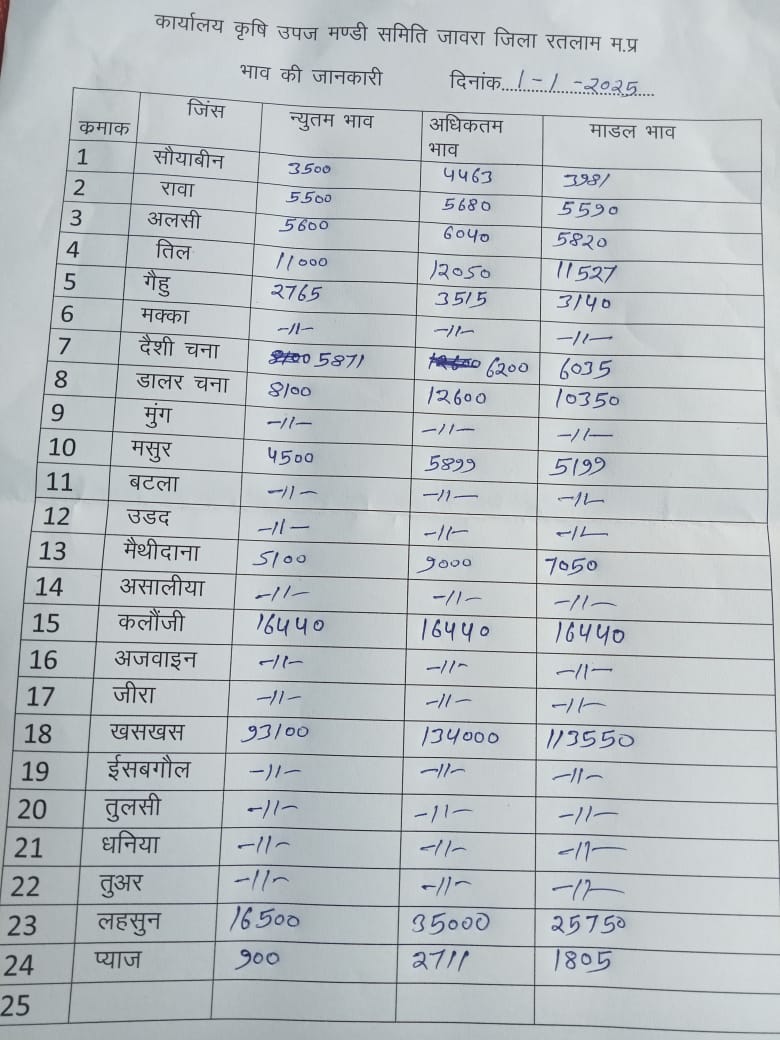 कार्यालय कृषि उपज मण्डी समिति जावरा जिला रतलाम म.प्र
भाव की जानकारी दिनांक 1-1-2025
कमाक जिंस न्युतम भाव अधिकतम भाव माडल भाव
1 सौयाबीन 3500 4463 3981
2 रावा 5500 5680 5590
3 अलसी 5600 6040 5820
4 तिल 11000 12050 11527
5 गैहु 2765 3515 3140
6 मक्का -11- -11- -11-
7 दैशी चना 8100 5871 12600 6200 6035
8 डालर चना 8100 12600 10350
9 मुंग -11- -11- -11-
10 मसुर 4500 5899 5199
11 बटला -11- -11- -11-
12 उडद -11- -11- -11-
13 मैथीदाना 5100 9000 7050
14 असालीया -11- -11- -11-
15 कलौंजी 16440 16440 16440
16 अजवाइन -11- -11- -11-
17 जीरा -11- -11- -11-
18 खसखस 93100 134000 113550
19 ईसबगौल -11- -11- -11-
20 तुलसी -11- -11- -11-
21 धनिया -11- -11- -11-
22 तुअर -11- -11- -11-
23 लहसुन 16500 35000 25750
24 प्याज 900 2711 1805
25